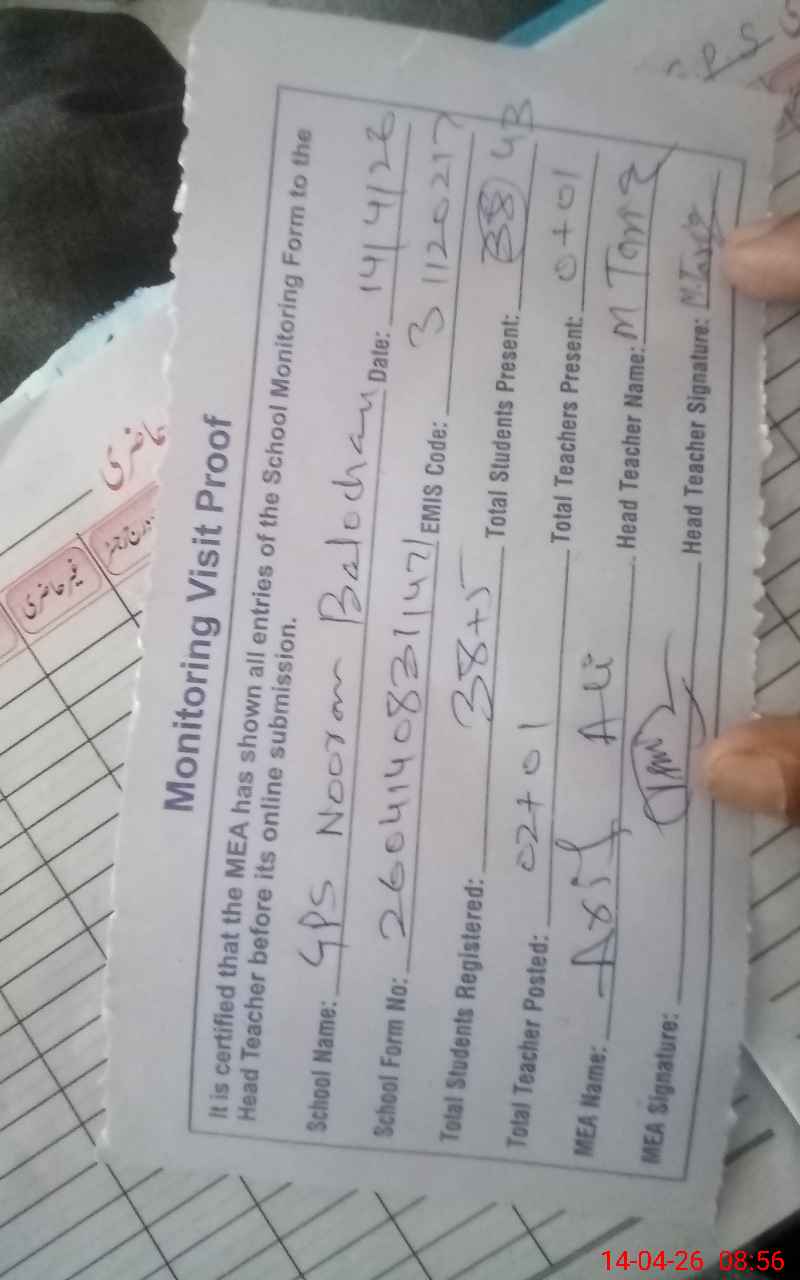 Monitoring Visit Proof
It is certified that the MEA has shown all entries of the School Monitoring Form to the
Head Teacher before its online submission.
School Name: GPS Nooran Balochan Date: 14/4/26
School Form No: 26041408311471 EMIS Code: 31120217
Total Students Registered: 38+5 Total Students Present: 38
Total Teacher Posted: 02+01 Total Teachers Present: 0+01
MEA Name: Asif Ali Head Teacher Name: M Tariq
MEA Signature: Head Teacher Signature: M.Tariq
حاضری
غیر حاضری
14-04-26 08:56